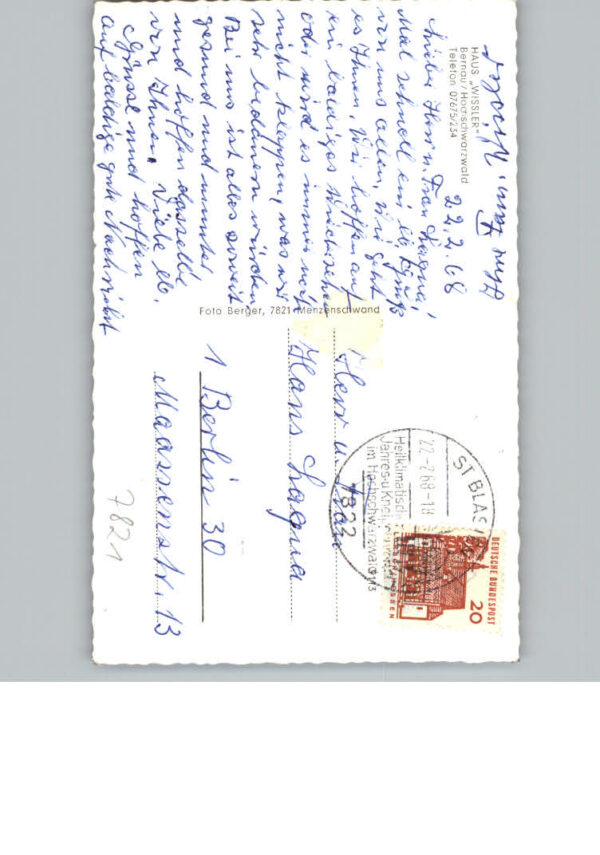 HAUS „WISSLER"
Bernau / Hochschwarzwald
Telefon 07675/234
22.2.68
Liebe Herr u. Frau Lagna,
Mal schnell ein lb. Gruß
von uns allen, wie geht
es Ihnen. Wir hoffen auf
ein baldiges Wiedersehen
oder wird es immer noch
nicht klappen, was wir
sehr bedauern würden
Bei uns ist alles soweit
gesund und munter
und hoffen dasselbe
von Ihnen. Viele lb.
Grüsse und hoffen
auf baldige gute Nachricht
Ihre Fam.
Foto Berger, 7821 Menzenschwand
Herr u. Frau
Hans Lagna
1 Berlin 30
Maassenstr. 13
7821
ST BLASIEN
22.-2.68-18
7822
Heilklimatischer
Jahres-u
im Hochschwarzwald
DEUTSCHE BUNDESPOST
20